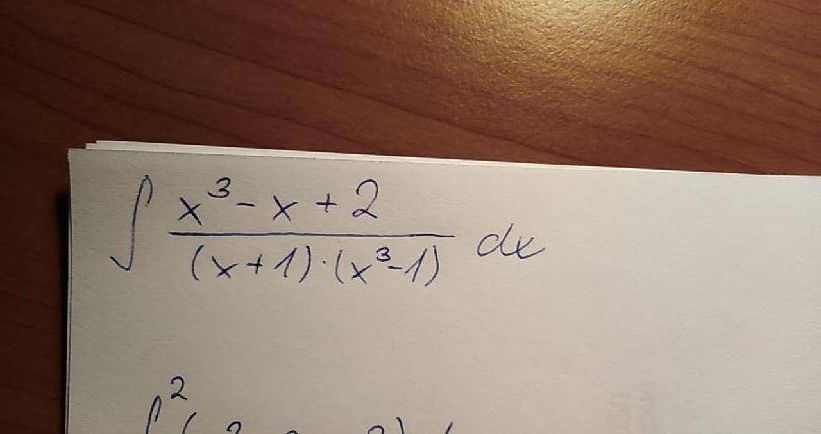 ∫ (x³ - x + 2) / ((x+1)·(x³-1)) dx
∫²